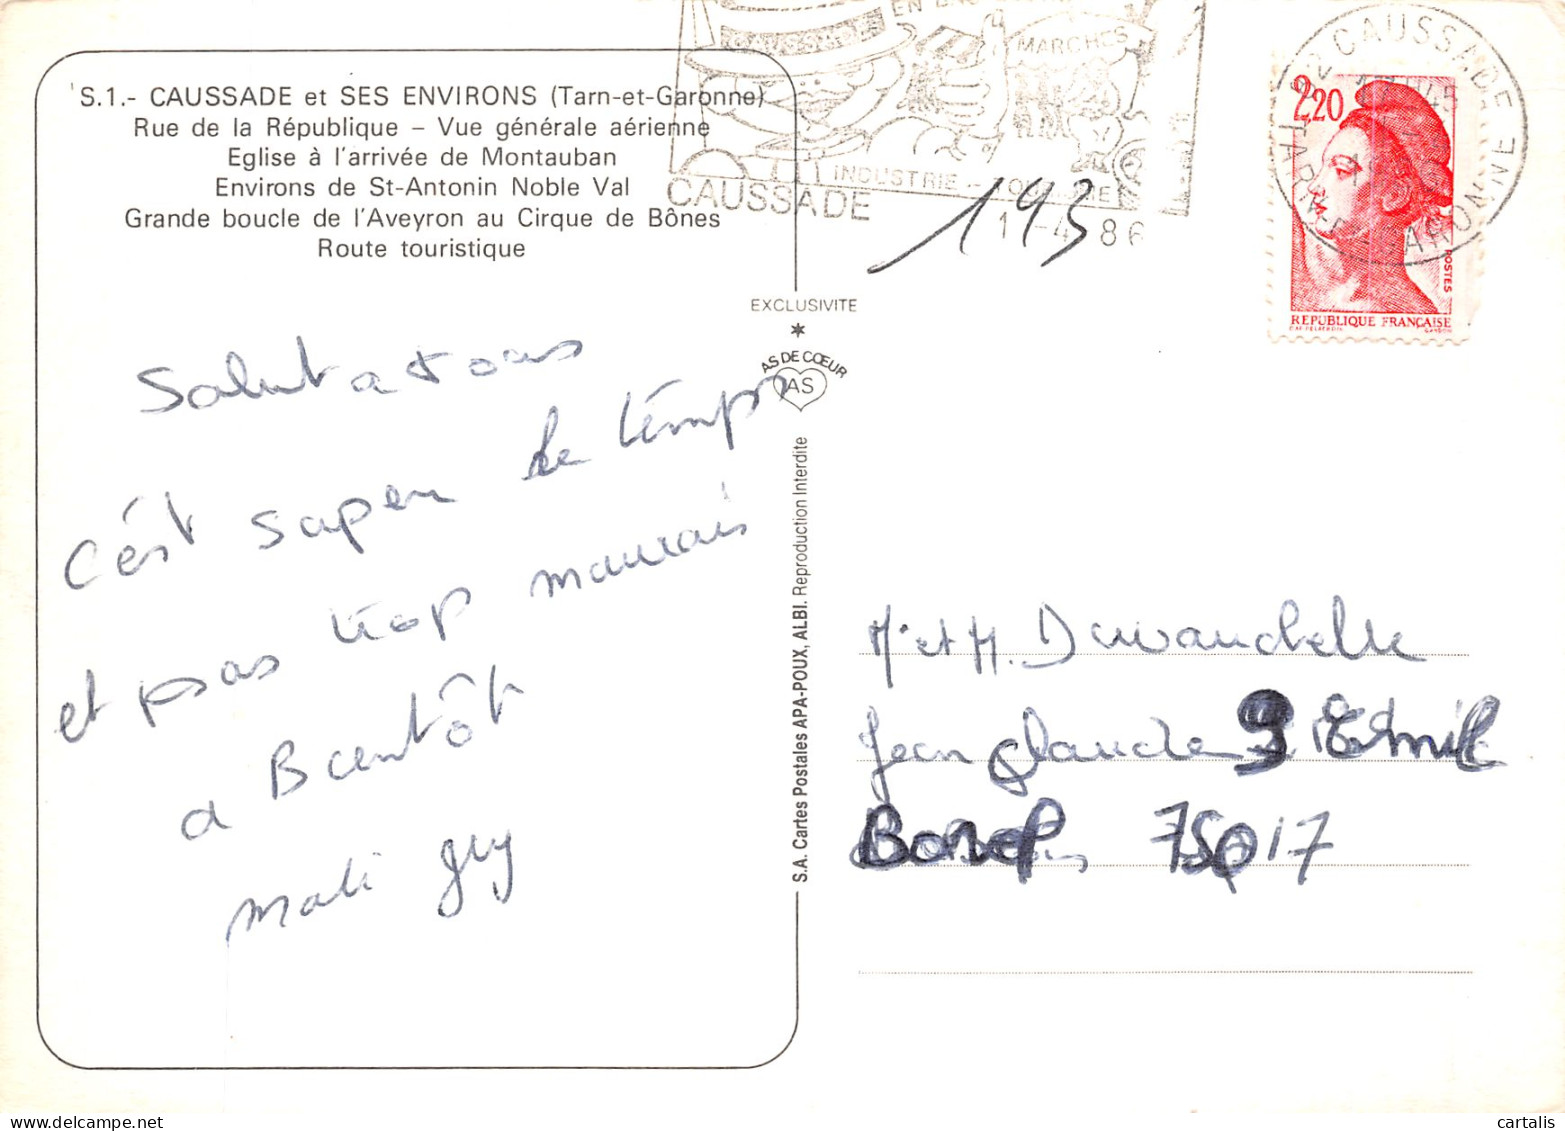 S.1.- CAUSSADE et SES ENVIRONS (Tarn-et-Garonne)
Rue de la République – Vue générale aérienne
Eglise à l'arrivée de Montauban
Environs de St-Antonin Noble Val
Grande boucle de l'Aveyron au Cirque de Bônes
Route touristique
MARCHES
INDUSTRIE -
CAUSSADE
1 -4 86
193
CAUSSADE
TARN-ET-GARONNE
2,20
POSTES
REPUBLIQUE FRANÇAISE
EXCLUSIVITE
AS DE CŒUR
AS
S.A. Cartes Postales APA-POUX, ALBI. Reproduction Interdite
Salut a tous
c'est super le temps
et pas trop mauvais
a Bientôt
guy
et M.
Jean Claude
75017
cartalis